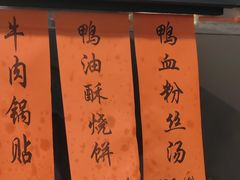 牛肉锅贴
鸭油酥烧饼
鸭血粉丝汤